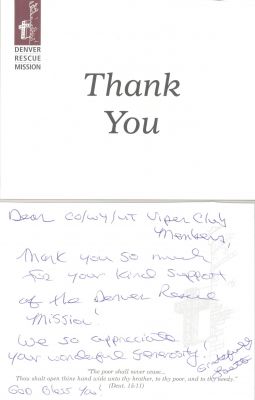 DENVER
RESCUE
MISSION
Thank
You
Dear CO/WY/UT Viper Club
Members,
Thank you so much
for your kind support
of the Denver Rescue
Mission!
We so appreciate
your wonderful generosity!
"The poor shall never cease...
Thou shalt open thine hand wide unto thy brother, to thy poor, and to thy needy."
(Deut. 15:11)
God Bless You!